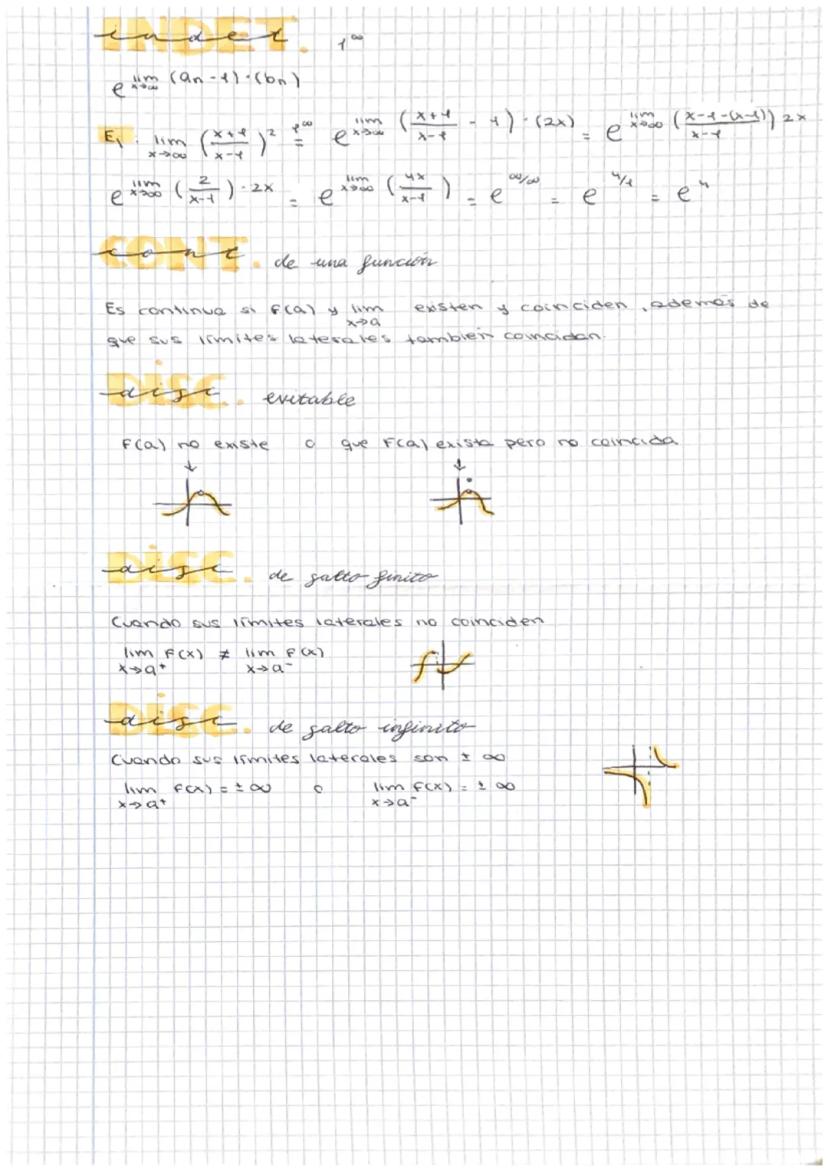 INDET. 1^∞
e^{lim x→∞ (an - 1) · (bn)}
Ej: lim x→∞ ((x+1)/(x-1))^2 =^{1^∞} e^{lim x→∞ ((x+1)/(x-1) - 1) · (2x)} = e^{lim x→∞ ((x-1-(x-1))/(x-1)) 2x}
e^{lim x→∞ (2/(x-1)) · 2x} = e^{lim x→∞ (4x/(x-1))} = e^{∞/∞} = e^{4/1} = e^4
CONT. de una función
Es continua si f(a) y lim x→a existen y coinciden, además de
que sus límites laterales también coincidan.
DISC. evitable
F(a) no existe o que F(a) exista pero no coincida
↓ ↓
DISC. de salto finito
Cuando sus límites laterales no coinciden
lim x→a⁺ F(x) ≠ lim x→a⁻ F(x)
DISC. de salto infinito
Cuando sus límites laterales son ± ∞
lim x→a⁺ F(x) = ± ∞ o lim x→a⁻ F(x) = ± ∞